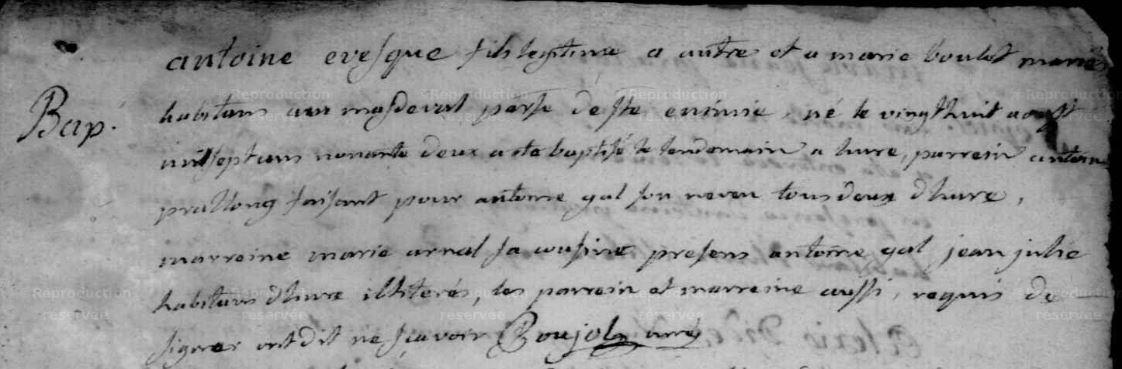 antoine evesque fils legitime a autre et a marie boulet mariés
Bap. habitans au masdeval parse de ste enimie, né le vingthuit aoust
mil sept cens nonante deux a ete baptisé le lendemain a hure, parrein antoine
prallong faisant pour antoine gal son neveu tous deux d'hure,
marreine marie arnal sa cousine presens antoine gal jean julie
habitans d'hure illiterés, les parrein et marreine aussi, requis de
signer ont dit ne sçavoir Boujol curé